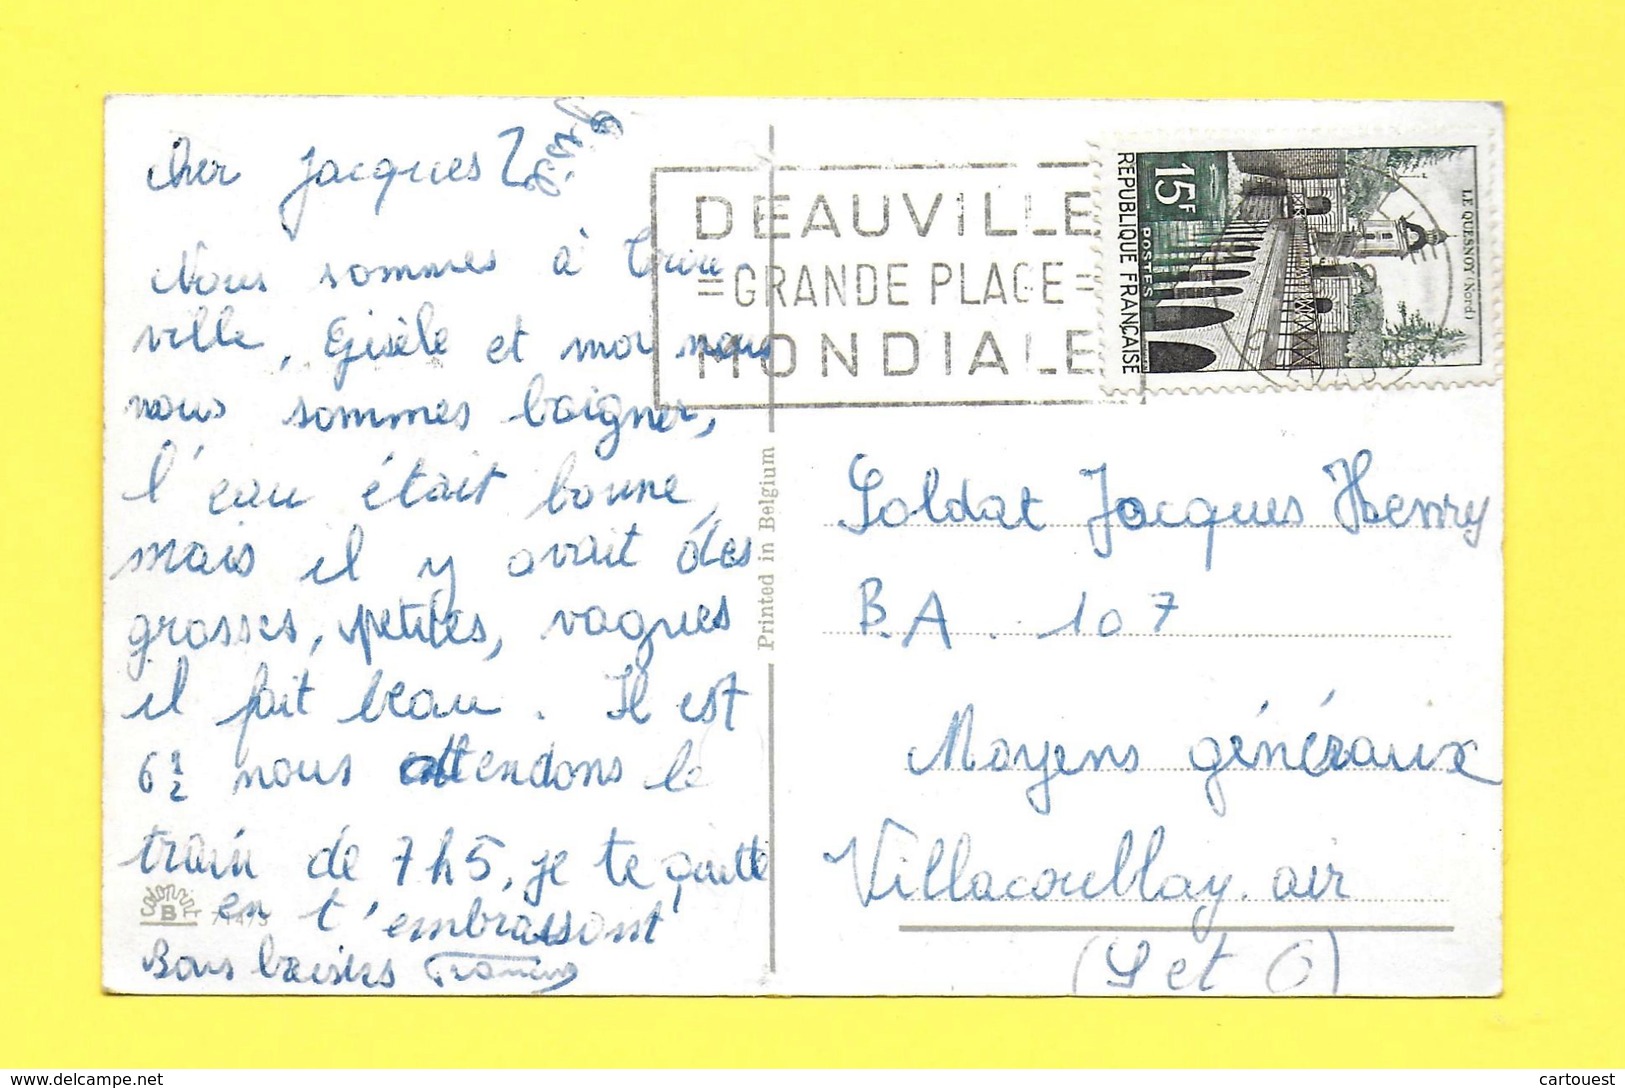 Cher Jacques
Nous sommes à Trou
ville, Gisèle et moi nous
nous sommes baigner,
l'eau était bonne,
mais il y avait des
grosses, petites, vagues
il fait beau. Il est
6 1/2 nous attendons le
train de 7h5, je te quitte
en t'embrassant
Bons baisers Francine
B
Printed in Belgium
DEAUVILLE
=GRANDE PLAGE=
MONDIALE
LE QUESNOY (Nord)
15F
POSTES
REPUBLIQUE FRANÇAISE
Soldat Jacques Henry
B.A. 107
Moyens généraux
Villacoublay.air
(S et O)
delcampe.net
cartouest